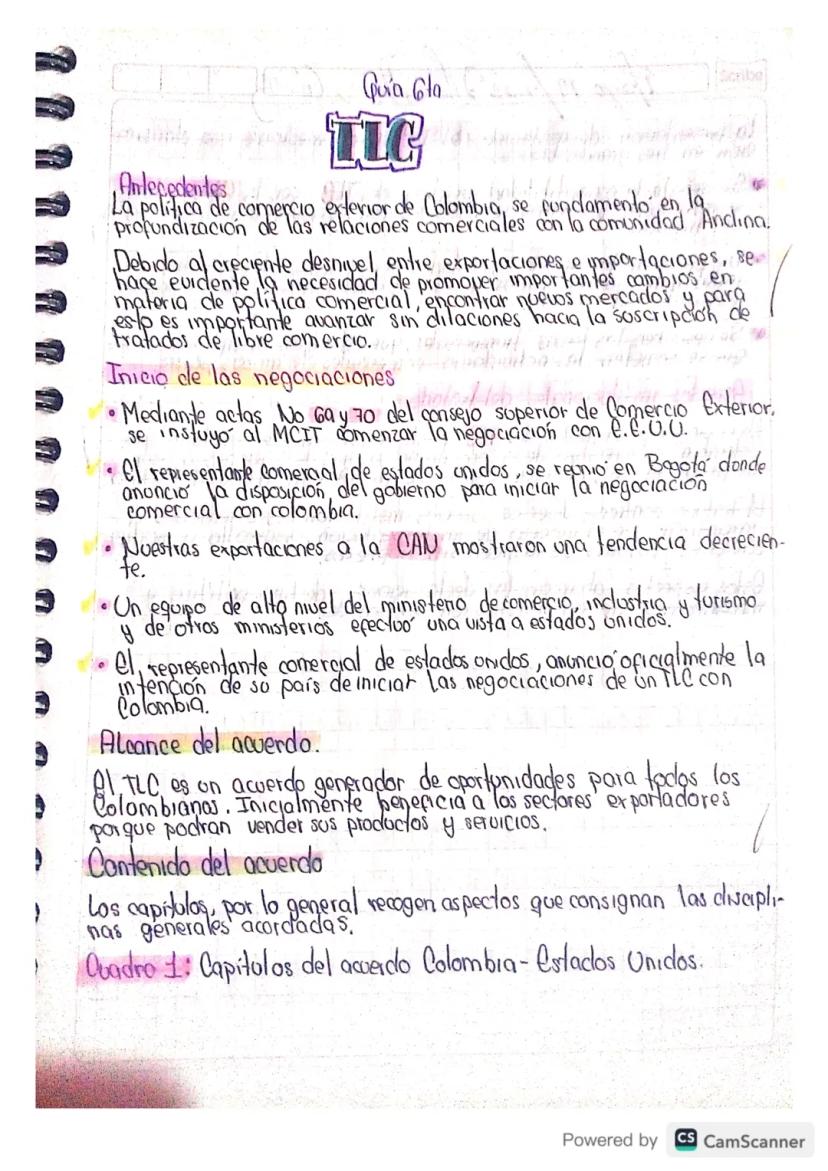 Guía 6ta
TLC
Scribe
Antecedentes
La política de comercio exterior de Colombia, se fundamentó en la
profundización de las relaciones comerciales con la comunidad Andina.
Debido al creciente desnivel entre exportaciones e importaciones, se
hace evidente la necesidad de promover importantes cambios en
materia de política comercial, encontrar nuevos mercados y para
esto es importante avanzar sin dilaciones hacia la suscripción de
tratados de libre comercio.
Inicio de las negociaciones
• Mediante actas No 69 y 70 del consejo superior de Comercio Exterior,
se instuyó al MCIT comenzar la negociación con E.E.U.U.
• El representante comercial de estados unidos, se reunió en Bogotá donde
anunció la disposición del gobierno para iniciar la negociación
comercial con colombia.
• Nuestras exportaciones a la CAN mostraron una tendencia decrecien-
te.
• Un equipo de alto nivel del ministerio de comercio, industria y turismo
y de otros ministerios efectuó una vista a estados unidos.
• El representante comercial de estados unidos, anunció oficialmente la
intención de su país de iniciar las negociaciones de un TLC con
Colombia.
Alcance del acuerdo.
El TLC es un acuerdo generador de oportunidades para todos los
Colombianos. Inicialmente beneficia a los sectores exportadores
porque podran vender sus productos y servicios.
Contenido del acuerdo
Los capítulos, por lo general recogen aspectos que consignan las discipli-
nas generales acordadas.
Cuadro 1: Capítulos del acuerdo Colombia - Estados Unidos.
Powered by CS CamScanner